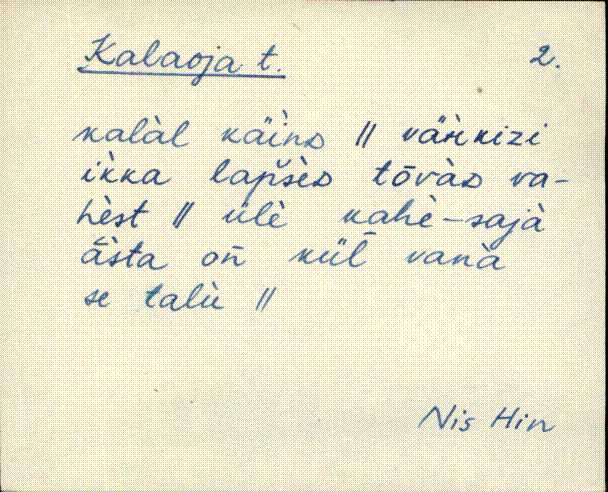 Kalaoja t. 2.
kalàl käìnᴅ || väŕkizi
ìkka lapšèᴅ tōvàᴅ va-
hèst || ülè kahè-sajà
ā̈sta oñ kül̄ vanà
se talù ||
Nis Hin